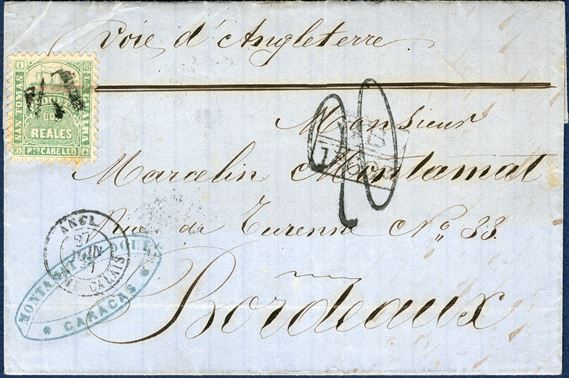 Voie d'Angleterre.
SAN TOMAS
LA GUAIRA
REALES
PTO CABELLO
Monsieur
Marcelin Montamat
Rue de Turenne No. 33.
Bordeaux
ANGL.
27
JUIN
CALAIS
MONTAMAT
CARACAS